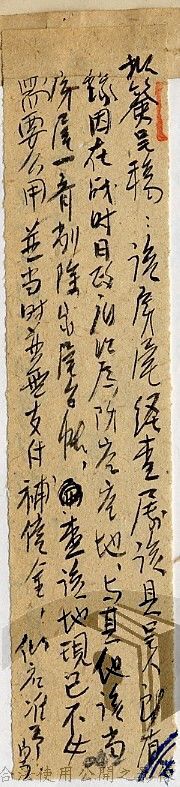 拟簽呈稿：該房屋經查屬該具呈人所有
緣因在战时日政府以為防空空地，与其他該当
房屋一齊剔除出屋台帳，查該地現已不必
需要公用並当时並無支付補償金，似应准予
合法使用公開之